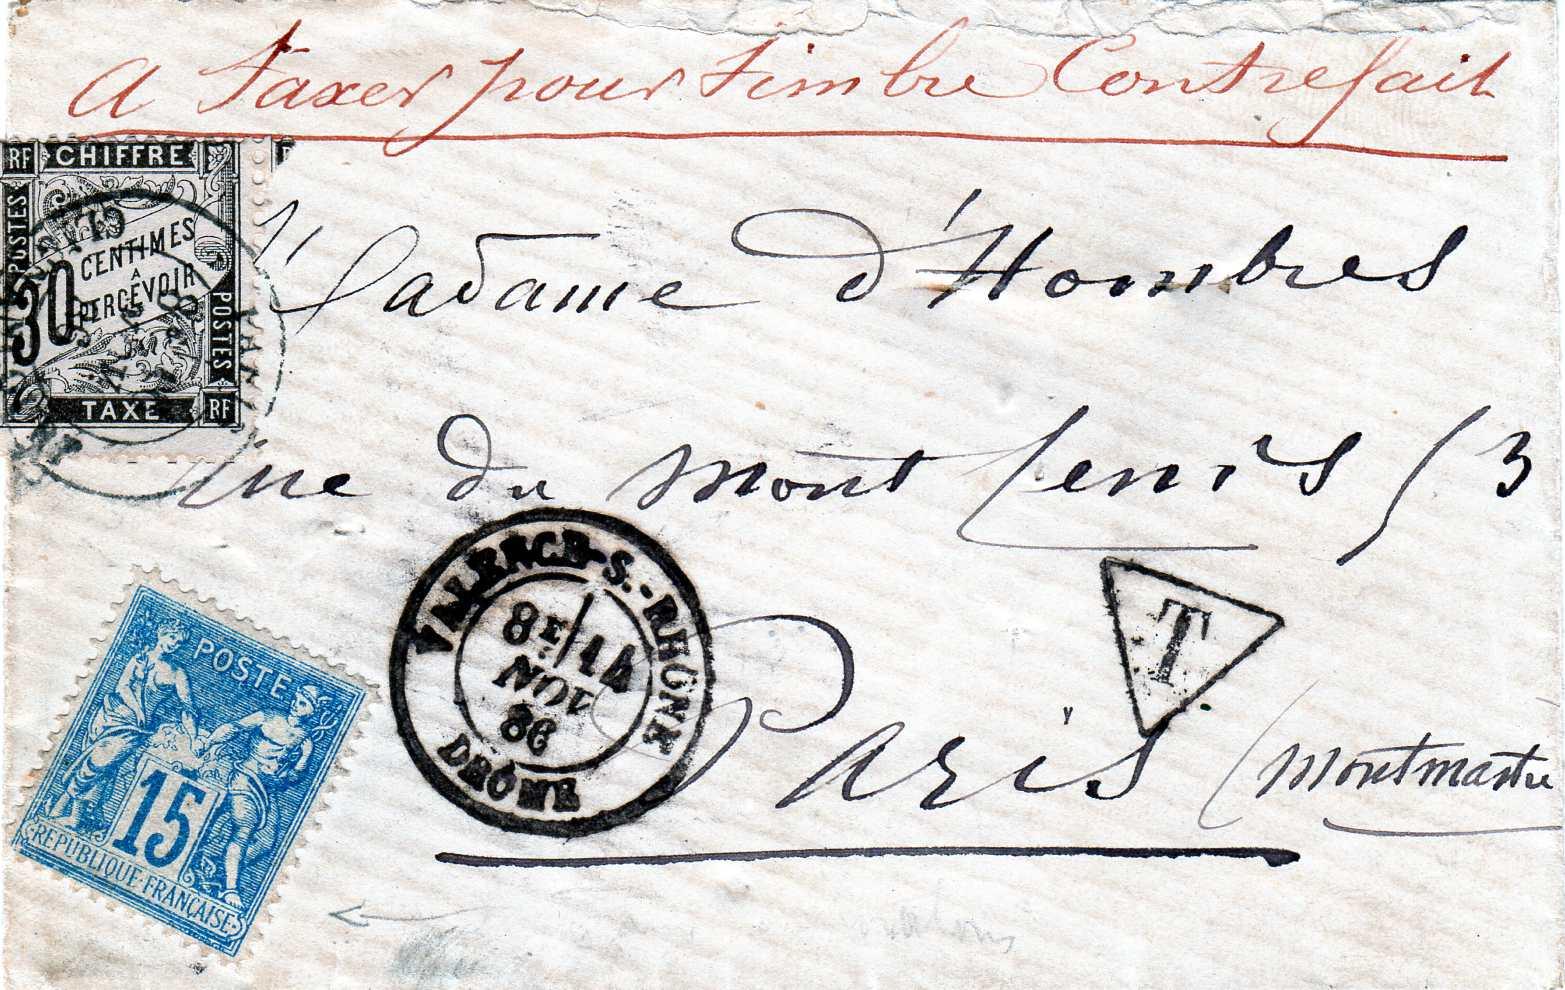 A Taxer pour timbre Contrefait
RF CHIFFRE
POSTES
CENTIMES
À
PERCEVOIR
30
POSTES
TAXE RF
Madame d'Hombres
Rue du Mont Cenis 53
VALENCE-S.-RHÔNE
8E/14
NOV
86
DRÔME
T
Paris (Montmartre
POSTE
15
REPUBLIQUE FRANÇAISE